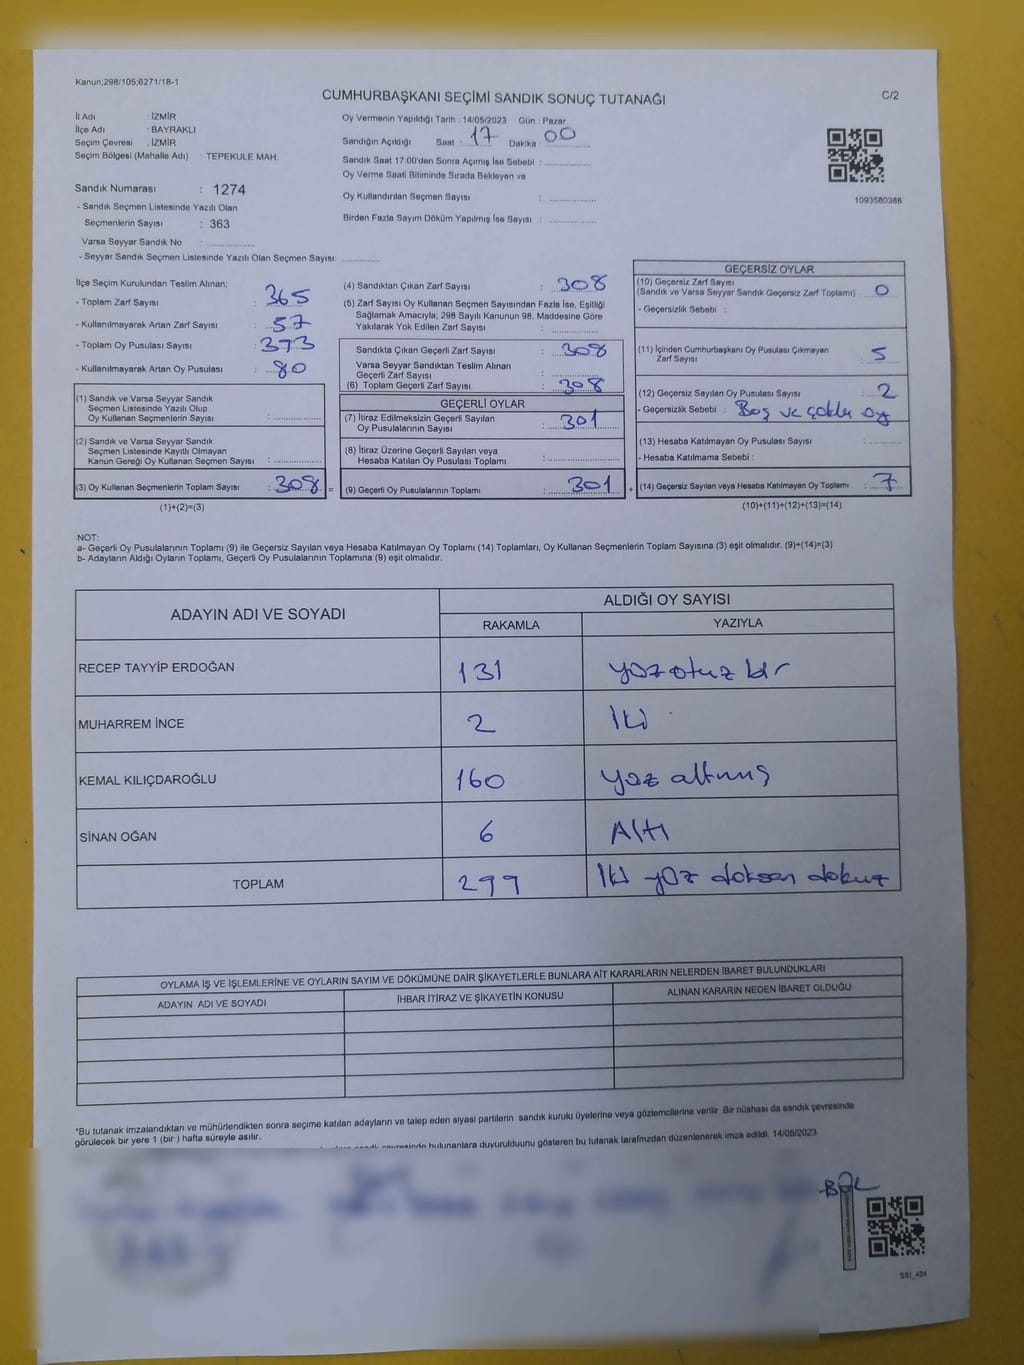 Kanun;298/105;6271/18-1
CUMHURBAŞKANI SEÇİMİ SANDIK SONUÇ TUTANAĞI
C/2
İl Adı : İZMİR
İlçe Adı : BAYRAKLI
Seçim Çevresi : İZMİR
Seçim Bölgesi (Mahalle Adı) : TEPEKULE MAH.
Oy Vermenin Yapıldığı Tarih : 14/05/2023 Gün : Pazar
Sandığın Açıldığı Saat : 17 Dakika : 00
Sandık Saat 17:00'den Sonra Açımış İse Sebebi :
Oy Verme Saati Bitiminde Sırada Bekleyen ve
Oy Kullandırılan Seçmen Sayısı :
Birden Fazla Sayım Döküm Yapılmış İse Sayısı :
1093580388
Sandık Numarası : 1274
- Sandık Seçmen Listesinde Yazılı Olan
Seçmenlerin Sayısı : 363
Varsa Seyyar Sandık No :
- Seyyar Sandık Seçmen Listesinde Yazılı Olan Seçmen Sayısı:
İlçe Seçim Kurulundan Teslim Alınan;
- Toplam Zarf Sayısı : 365
- Kullanılmayarak Artan Zarf Sayısı : 57
- Toplam Oy Pusulası Sayısı : 373
- Kullanılmayarak Artan Oy Pusulası : 80
(1) Sandık ve Varsa Seyyar Sandık
Seçmen Listesinde Yazılı Olup
Oy Kullanan Seçmenlerin Sayısı :
(2) Sandık ve Varsa Seyyar Sandık
Seçmen Listesinde Kayıtlı Olmayan
Kanun Gereği Oy Kullanan Seçmen Sayısı :
(3) Oy Kullanan Seçmenlerin Toplam Sayısı : 308 =
(1)+(2)=(3)
(4) Sandıktan Çıkan Zarf Sayısı : 308
(5) Zarf Sayısı Oy Kullanan Seçmen Sayısından Fazla İse, Eşitliği
Sağlamak Amacıyla; 298 Sayılı Kanunun 98. Maddesine Göre
Yakılarak Yok Edilen Zarf Sayısı :
Sandıkta Çıkan Geçerli Zarf Sayısı : 308
Varsa Seyyar Sandıktan Teslim Alınan
Geçerli Zarf Sayısı :
(6) Toplam Geçerli Zarf Sayısı : 308
GEÇERLİ OYLAR
(7) İtiraz Edilmeksizin Geçerli Sayılan
Oy Pusulalarının Sayısı : 301
(8) İtiraz Üzerine Geçerli Sayılan veya
Hesaba Katılan Oy Pusulası Toplamı :
(9) Geçerli Oy Pusulalarının Toplamı : 301 +
GEÇERSİZ OYLAR
(10) Geçersiz Zarf Sayısı
(Sandık ve Varsa Seyyar Sandık Geçersiz Zarf Toplamı) : 0
- Geçersizlik Sebebi :
(11) İçinden Cumhurbaşkanı Oy Pusulası Çıkmayan
Zarf Sayısı : 5
(12) Geçersiz Sayılan Oy Pusulası Sayısı : 2
- Geçersizlik Sebebi : Boş ve çoklu oy
(13) Hesaba Katılmayan Oy Pusulası Sayısı :
- Hesaba Katılmama Sebebi :
(14) Geçersiz Sayılan veya Hesaba Katılmayan Oy Toplamı : 7
(10)+(11)+(12)+(13)=(14)
NOT:
a- Geçerli Oy Pusulalarının Toplamı (9) ile Geçersiz Sayılan veya Hesaba Katılmayan Oy Toplamı (14) Toplamları, Oy Kullanan Seçmenlerin Toplam Sayısına (3) eşit olmalıdır. (9)+(14)=(3)
b- Adayların Aldığı Oyların Toplamı, Geçerli Oy Pusulalarının Toplamına (9) eşit olmalıdır.
ADAYIN ADI VE SOYADI
ALDIĞI OY SAYISI
RAKAMLA YAZIYLA
RECEP TAYYİP ERDOĞAN 131 yüz otuz bir
MUHARREM İNCE 2 İki
KEMAL KILIÇDAROĞLU 160 yüz altmış
SİNAN OĞAN 6 Altı
TOPLAM 299 İki yüz doksan dokuz
OYLAMA İŞ VE İŞLEMLERİNE VE OYLARIN SAYIM VE DÖKÜMÜNE DAİR ŞİKAYETLERLE BUNLARA AİT KARARLARIN NELERDEN İBARET BULUNDUKLARI
ADAYIN ADI VE SOYADI İHBAR İTİRAZ VE ŞİKAYETİN KONUSU ALINAN KARARIN NEDEN İBARET OLDUĞU
*Bu tutanak imzalandıktan ve mühürlendikten sonra seçime katılan adayların ve talep eden siyasi partilerin sandık kurulu üyelerine veya gözlemcilerine verilir .Bir nüshası da sandık çevresinde
görülecek bir yere 1 (bir ) hafta süreyle asılır.
çevresinde bulunanlara duyurulduunu gösteren bu tutanak tarafımzdan düzenlenerek imza edildi. 14/05/2023
SSI_404